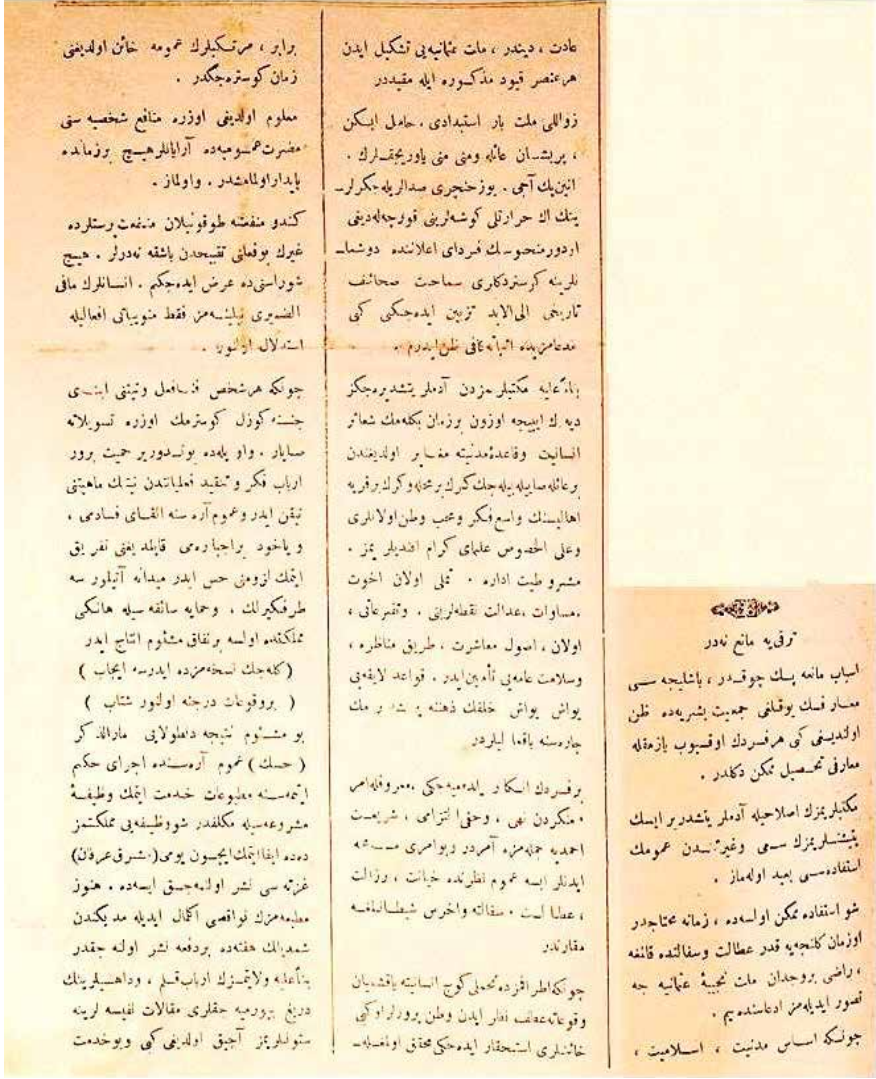 ترقی یه مانع نه‌در
اسباب مانعه پك چوقدر ، باشلیجه سی
معارفسك یوقلغی جمعیت بشریه‌ده ظن
اولندیغی كبی هرفردك اوقیوب یازمقله
معارفی تحصیل ممكن دكلدر .
مكتبلریمزك اصلاحیله آدملر یتشدیرر ایسك
یتیشنلریمزك سعی وغیرتندن عمومك
استفاده‌سی بعید اوله‌ماز .
شو استفاده ممكن اولسه‌ده ، زمانه محتاجدر
اوزمان كلنجه‌یه قدر عطالت وسفالتده قانغه
، راضی بروجدان ملت نجیبهٔ عثمانیه جه
تصور ایدیله‌مز ادعاسنده‌یم .
چونكه اساس مدنیت ، اسلامیت ،
عادت ، دیندر ، ملت عثمانیه‌یی تشكیل ایدن
هرعنصر قیود مذكوره ایله مقیددر
زواللی ملت بار استبدادی حامل ایكن
، پریشان عائله ومنی منی یاوریجقلرك .
انین پك آجی . یوز خنچری صدالریله جكرلر-
ینك اك حرارتلی كوشه‌لرینی
اردور منحوسك فردای اعلاننده دوشما-
نلرینه كوستردكاری سماحت صحائف
تاریخی الی‌الابد تزیین ایده‌جكی كبی
مدعامزیده اثباته كافی ظن ایدرم .
بناءً علیه مكتبلریمزدن آدملر یتشدیره‌جكز
دیه‌رك اییجه اوزون برزمان بكله‌مك شعائر
انسانیت وقاعدهٔ مدنیته مغایر اولدیغندن
برعائله صاییله بیله‌جك كرك برمحله وكرك برقریه
اهالیسنك واسع فكر ومحب وطن اولانلری
وعلی الخصوص علمای كرام افندیلریمز .
مشروطیت اداره . تملی اولان اخوت
،مساوات ،عدالت نقطه‌لرینی . وتفرعاتی ،
اولان ، اصول معاشرت ، طریق مناظره ،
وسلامت عامه‌یی تأمین ایدر . قواعد لایقه‌یی
یواش یواش خلقك ذهننه یرلشدیرمك
چاره‌سنه باقمالیلردر
برفردك انكار ایده‌میه‌جكی ،معروفله‌امر
، منكردن نهی ، وحقی التزامی ، شریعت
احمدیه جمله‌مزه آمردر وبوامری
ایدنلر ایسه عموم نظرنده خیانت ، رزالت
، عطالت . سفالته واخرس شیطانلغه
مقارندر
چونكه اطرافمزده تحملی كوچ انسانیته یاقشمیان
وقوعاته عطف نظر ایدن وطن پرورلر اوكبی
خائنلری استحقار ایده‌جكی محقق اولمغله-
برابر ، مرتكبلرك عمومه خائن اولدیغنی
زمان كوستره‌جكدر .
معلوم اولدیغی اوزره منافع شخصیه سنی
مضرت عمومیه‌ده آرایانلر هیچ برزمانده
پایدار اولمامشدر . واولماز .
كندو منفعتنه طوقونیلان منفعت‌پرستلرده
غیرك یوقعانی تقبیحدن باشقه نه‌درلر . هیچ
شوراسنی‌ده عرض ایده‌جكم . انسانلرك مافی
الضمیری بیلینه‌مز فقط منویاتی افعالیله
استدلال اولنور .
چونكه هرشخص فنا فعل ونیتنی ابنای
جنسنه كوزل كوسترمك اوزره تسویلاته
صاپار . واویله‌ده بولندیرر حمیت پرور
ارباب فكر وتنقید فعلیاتندن نیتك ماهیتنی
تیقن ایدر وعموم آره سنه القای فسادمی ،
ویاخود براجباره‌می قاپلدیغنی تفریق
ایتمك لزومنی حس ایدر میدانه آتیلور سه
طرفگیرلك ، وحمایه سائقه سیله هانكی
مملكتده اولسه برنفاق مشئوم انتاج ایدر
( كله‌جك نسخه‌مزده ایدرسه ایجاب )
( بروقوعات درجنه اولنور شتاب )
بو مشئوم نتیجه دن‌طولایی مارالذكر
( حسك ) عموم آره‌سنده اجرای حكم
ایتمه‌سنه مطبوعات خدمت ایتمك وظیفهٔ
مشروعه‌سیله مكلفدر شووظیفه‌یی مملكتمز
ده‌ده ایفا ایتمك ایچون یومی (مشرق عرفان)
غزته سی نشر اولنه‌جق ایسه‌ده . هنوز
مطبعه‌مزك نواقصی اكمال ایدیله‌مدیكندن
شمدیلك هفته‌ده بردفعه نشر اولنه جقدر
بناءً علیه ولایتمزك ارباب قلم ، وداهیلرینك
دریغ بیورمیه جقلری مقالات نفیسه لرینه
ستونلریمز آچیق اولدیغی كبی وبوخدمت